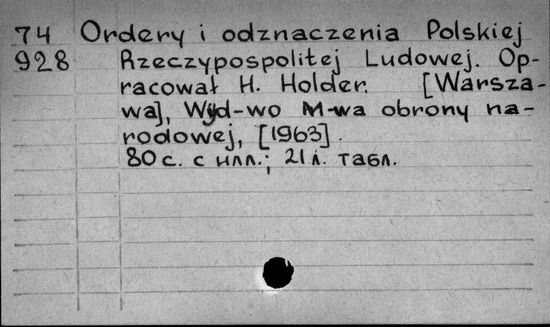 74 Ordery i odznaczenia Polskiej
928 Rzeczypospolitej Ludowej. Op-
racował H. Holder. [Warsza-
wa], Wyd-wo M-wa obrony na-
rodowej, [1963].
80 с. с илл.; 21 л. табл.